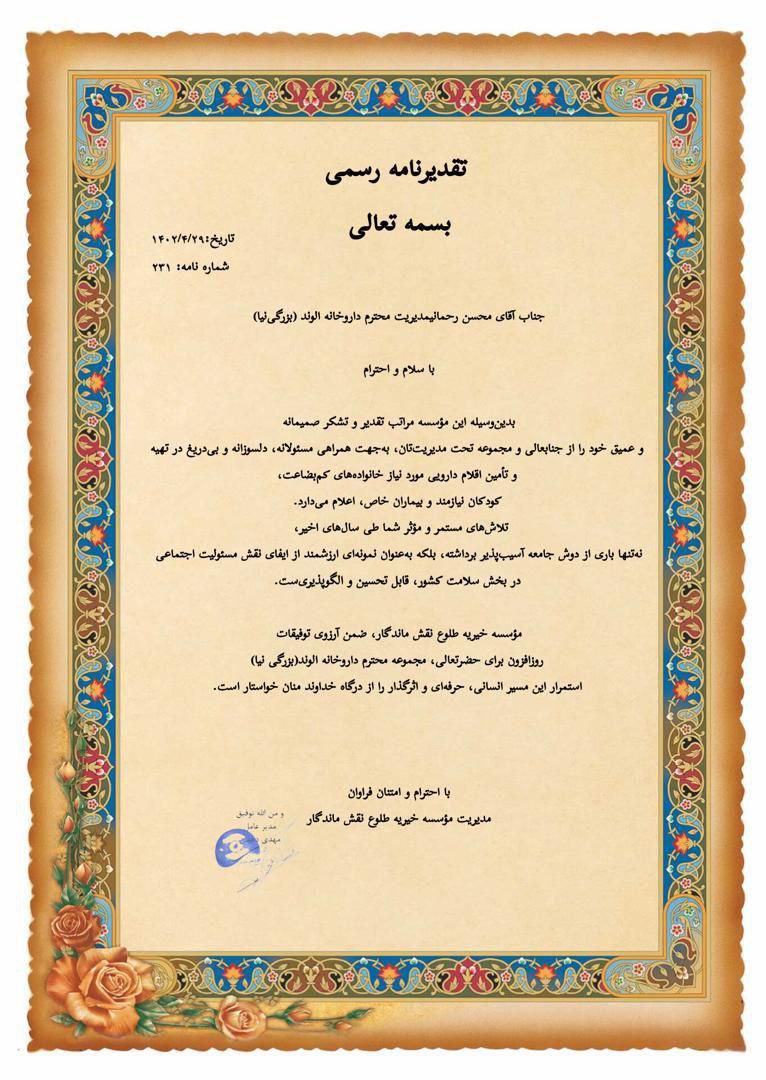 تقدیرنامه رسمی
بسمه تعالی
تاریخ:۱۴۰۲/۴/۲۹
شماره نامه: ۲۳۱
جناب آقای محسن رحمانیمدیریت محترم داروخانه الوند (بزرگی‌نیا)
با سلام و احترام
بدین‌وسیله این مؤسسه مراتب تقدیر و تشکر صمیمانه
و عمیق خود را از جنابعالی و مجموعه تحت مدیریت‌تان، به‌جهت همراهی مسئولانه، دلسوزانه و بی‌دریغ در تهیه
و تأمین اقلام دارویی مورد نیاز خانواده‌های کم‌بضاعت،
کودکان نیازمند و بیماران خاص، اعلام می‌دارد.
تلاش‌های مستمر و مؤثر شما طی سال‌های اخیر،
نه‌تنها باری از دوش جامعه آسیب‌پذیر برداشته، بلکه به‌عنوان نمونه‌ای ارزشمند از ایفای نقش مسئولیت اجتماعی
در بخش سلامت کشور، قابل تحسین و الگوپذیری‌ست.
مؤسسه خیریه طلوع نقش ماندگار، ضمن آرزوی توفیقات
روزافزون برای حضرتعالی، مجموعه محترم داروخانه الوند(بزرگی نیا)
استمرار این مسیر انسانی، حرفه‌ای و اثرگذار را از درگاه خداوند منان خواستار است.
با احترام و امتنان فراوان
مدیریت مؤسسه خیریه طلوع نقش ماندگار
و من الله توفیق
مدیر عامل
مهدی